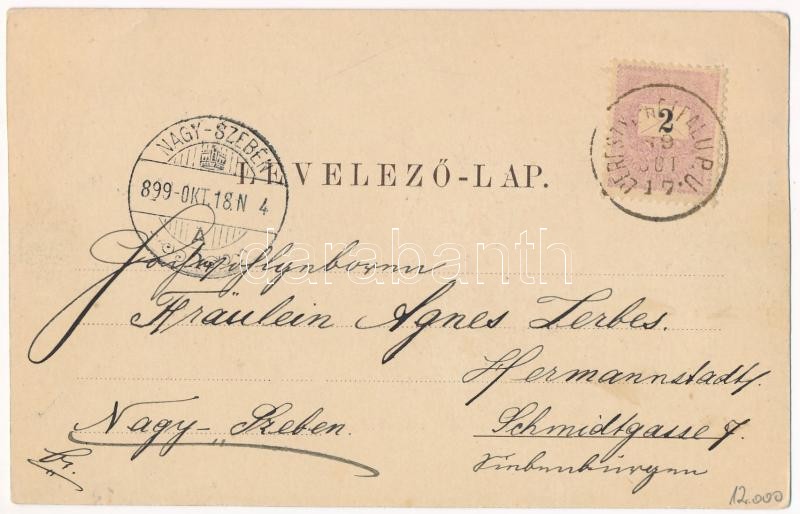 2
NAGY-SZEBEN
899-OKT.18.N 4
A
LEVELEZŐ-LAP.
17
darabanth
Fräulein Agnes Zerbes.
Hermannstadt.
Nagy-Szeben.
Schmidtgasse 7.
Siebenbürgen
12.000